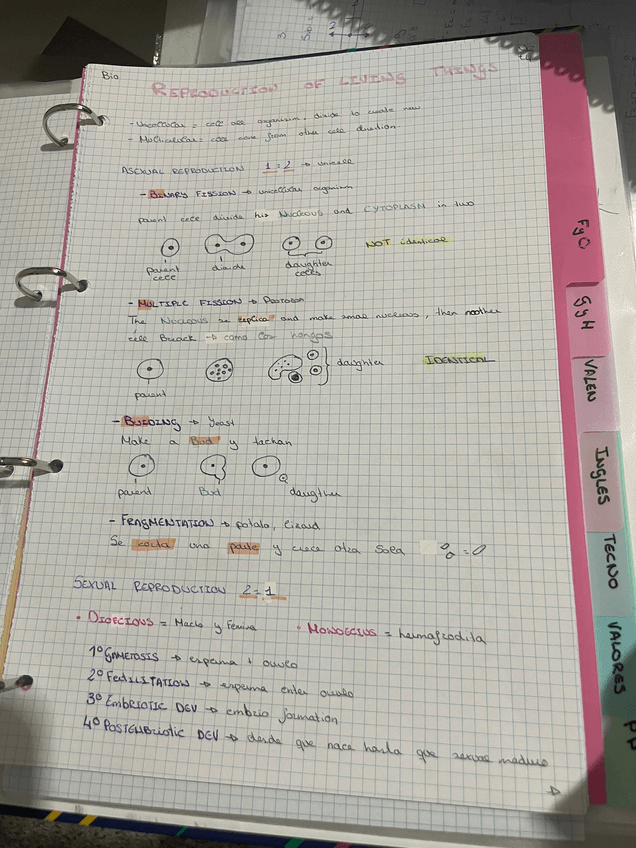 Bio
REPRODUCTION OF LIVING THINGS
- Unicellular = cell all organism, divide to create new
- Multicellular = cell come from other cell
ASEXUAL REPRODUCTION 1 = 2 → unicell
- BINARY FISSION → unicellular organism
parent cell divide his NUCLEOUS and CYTOPLASM in two
parent cell
divide
daughter cells
NOT identical
- MULTIPLE FISSION →
The Nucleous se replica and make small nucleous, then mother
cell → como los hongos
parent
daughter
IDENTICAL
- BUDDING → yeast
Make a Bud y tachan
parent
Bud
daugther
- FRAGMENTATION → potato, lizard
Se corta una parte y crece otra sola
= 0
SEXUAL REPRODUCTION 2 = 1
• DIOECIOUS = Macho y Femina
• MONOECIUS = hermafrodita
1º GAMETOSIS → esperma + ovulo
2º FEDILITATION → esperma enter ovulo
3º EMBRIOTIC DEV → embrio formation
4º POSTEMBRIOTIC DEV → desde que nace hasta que sexual maduro
FyQ
GyH
VALEN
INGLES
TECNO
VALORES